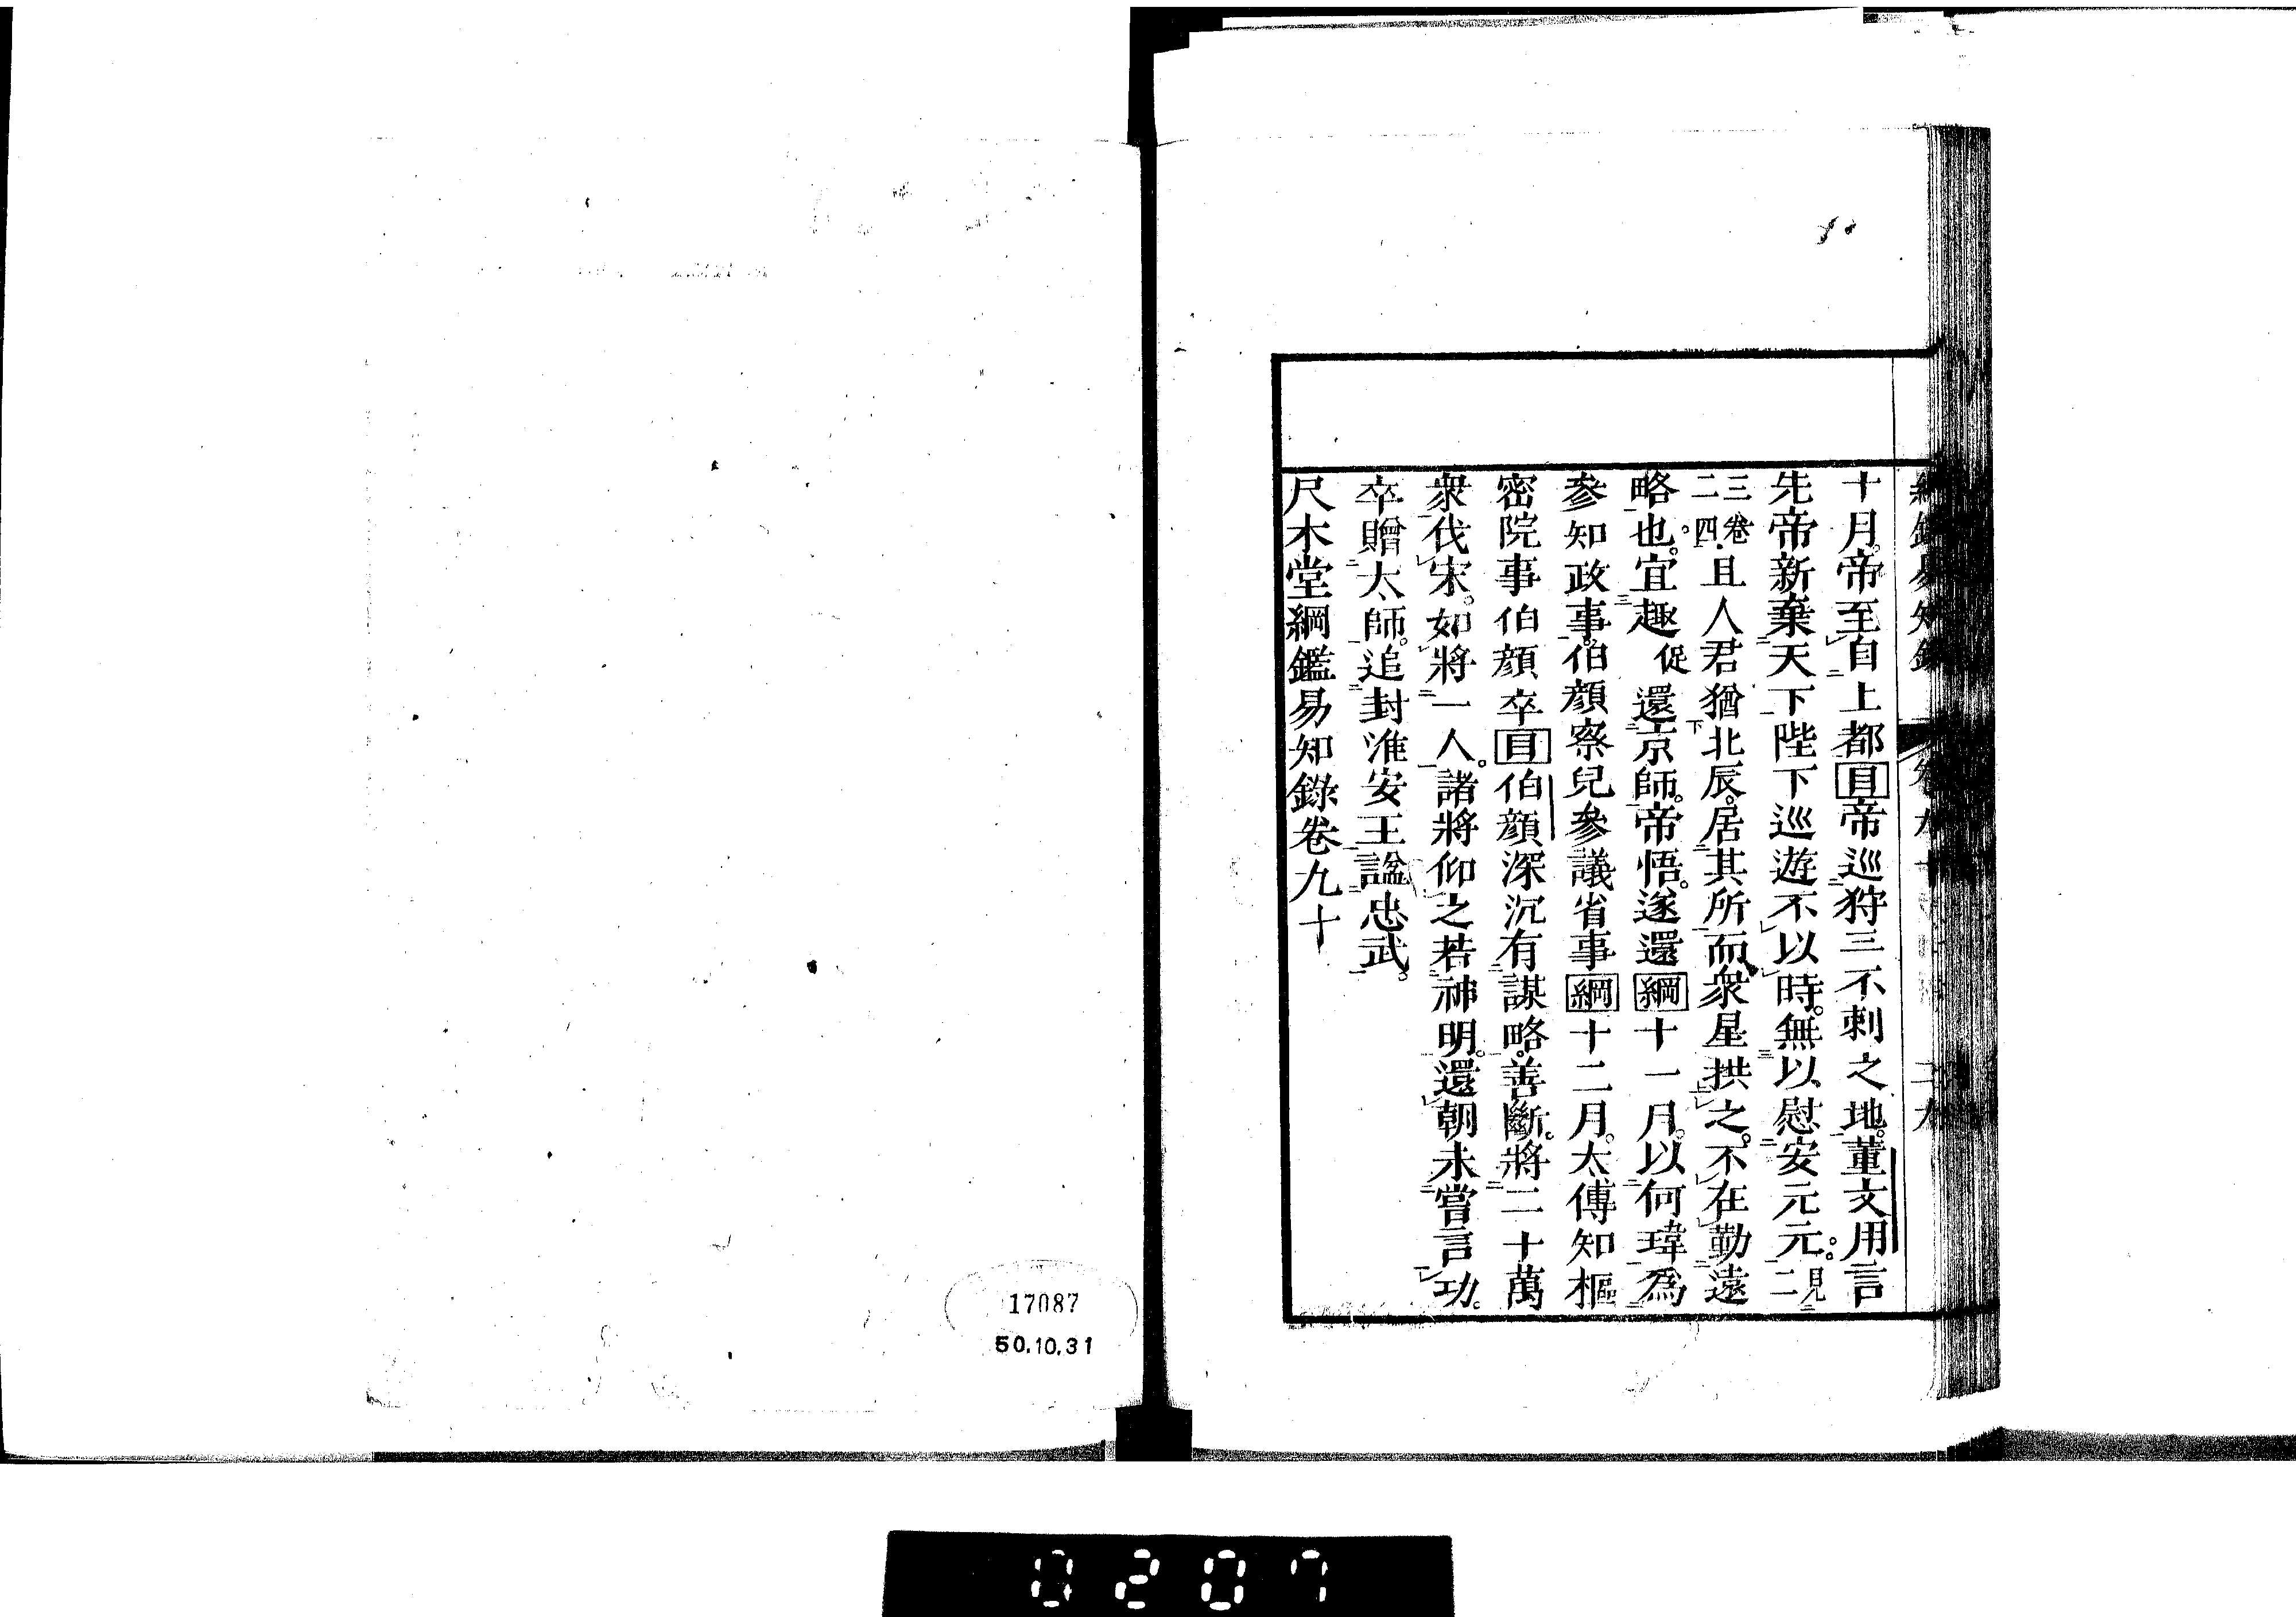 十月。帝至自上都目帝巡狩三不剌之地。董文用言
先帝新棄天下陛下巡遊不以時。無以慰安元元。見二
三卷二四且人君猶北辰。居其所而衆星拱之。不在勤遠
略也。宜趣促還京師。帝悟。遂還綱十一月。以何瑋爲
參知政事。伯顔察兒參議省事綱十二月。太傅知樞
密院事伯顔卒目伯顔深沉有謀略。善斷。將二十萬
衆伐宋。如將一人。諸將仰之若神明。還朝未嘗言功。
卒贈太師。追封淮安王諡忠武。
尺木堂綱鑑易知錄卷九十
17087
50.10.31
0207